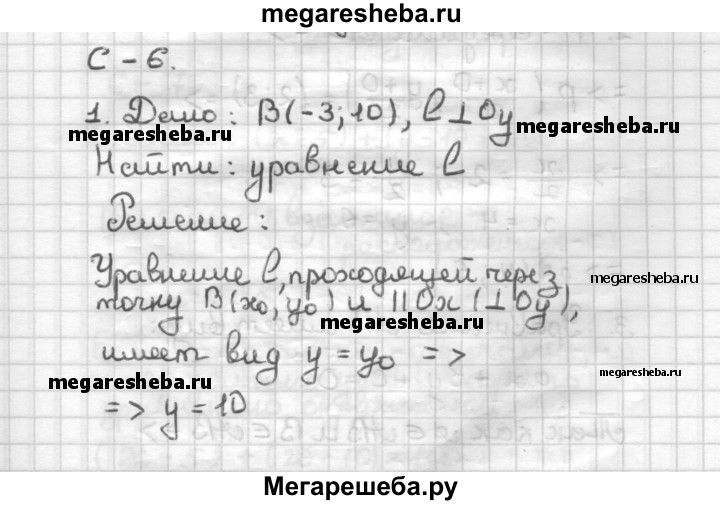 megaresheba.ru
С - 6.
1. Дано: B(-3; 10), l ⊥ Oy
megaresheba.ru megaresheba.ru
Найти: уравнение l
Решение:
Уравнение l, проходящей через
megaresheba.ru
точку B(x₀; y₀) и || Ox (⊥ Oy),
megaresheba.ru
имеет вид y = y₀ =>
megaresheba.ru megaresheba.ru
=> y = 10
Мегарешеба.ру